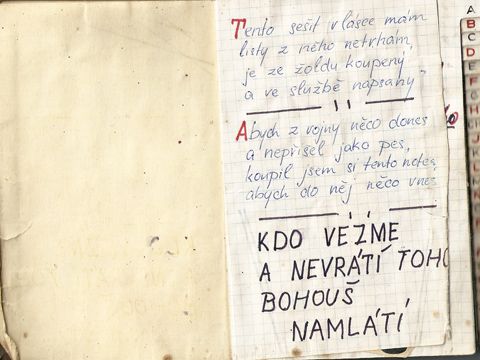 Tento sešit v lásce mám
listy z něho netrhám,
je ze žoldu koupený
a ve službě napsaný.
Abych z vojny něco dones
a nepřišel jako pes,
koupil jsem si tento notes
abych do něj něco vnes
KDO VEZME
A NEVRÁTÍ TOHO
BOHOUŠ
NAMLÁTÍ
A
B
C
D
E
F